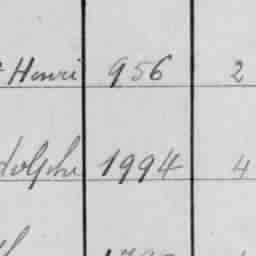 Henri 956 2
dolphe 1994 4